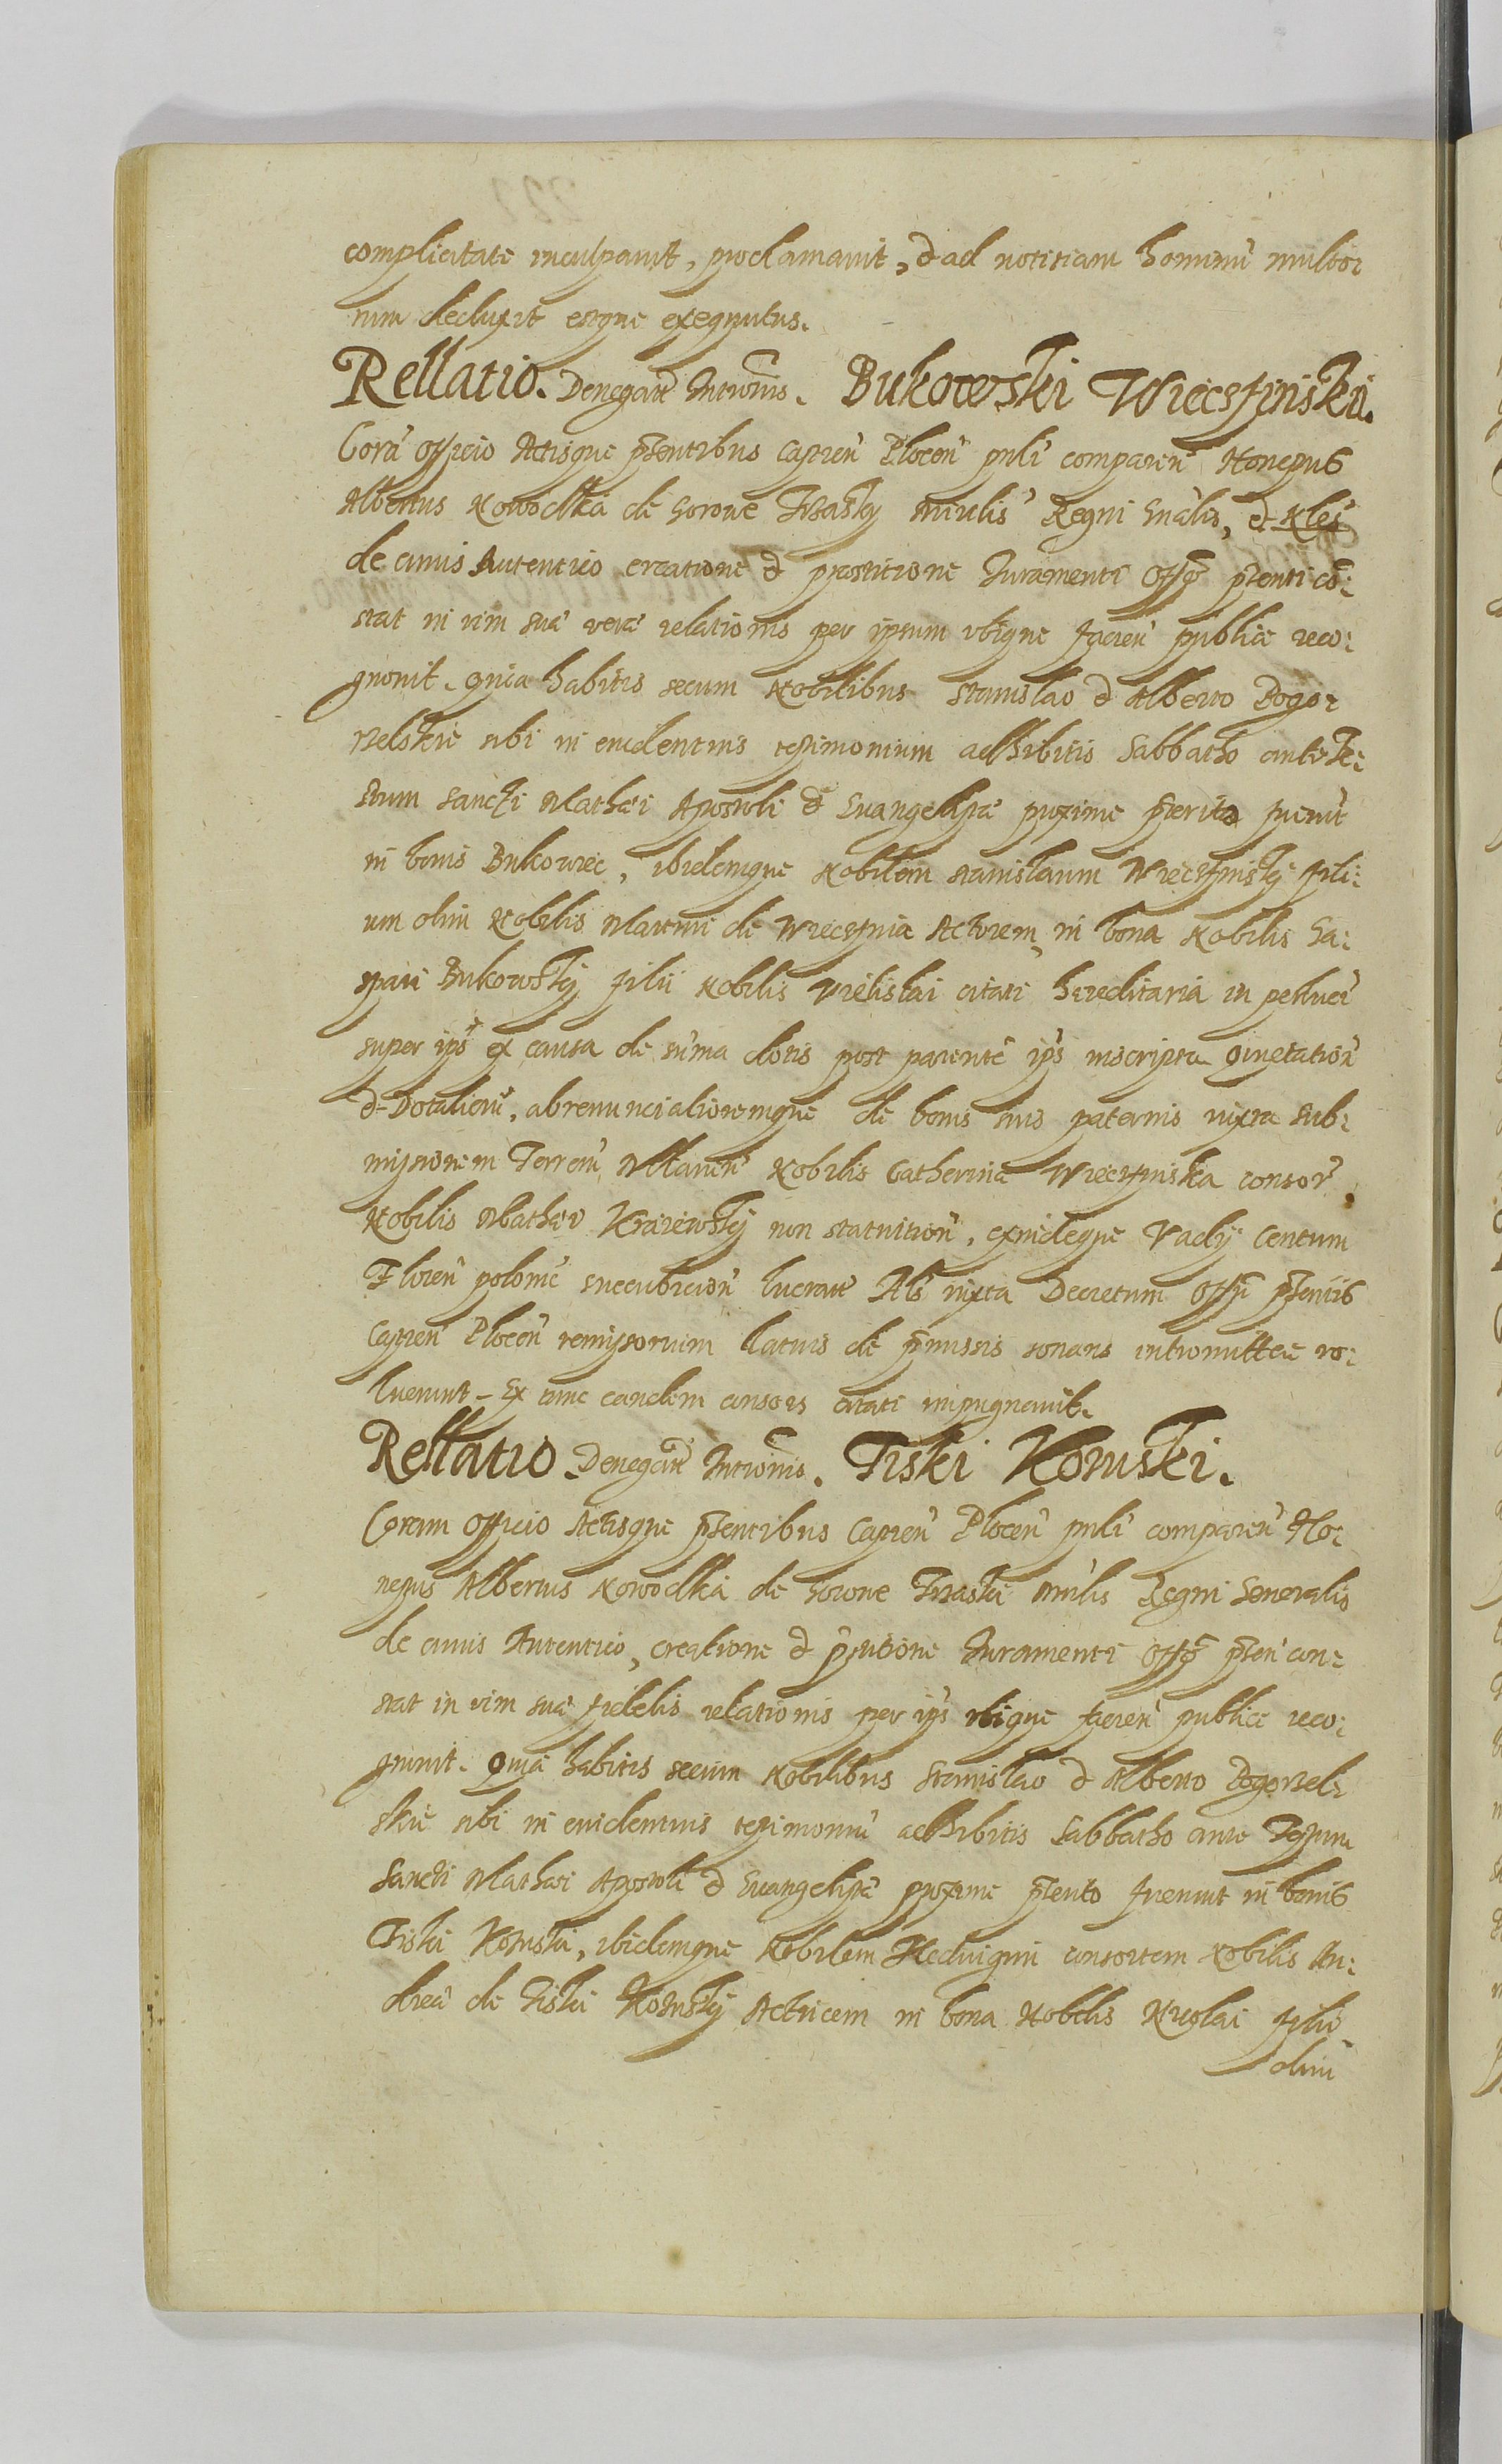 complicitate inculpavit, proclamavit, & ad notitiam hominũ multo:
rum deduxit estque exequutus.
Rellatio. Denegatæ Intromis. Bukowski Wieczfinski.
Corã Officio Actisque p̃sentibus Capten̄ Plocen̄ p̃nlĩ comparen̄ Honestus
Albertus Nowodka de Gorone Traski M̃nlis Regni Gn̄alis,
de cuius Autentico creatione & prestitione Iuramenti Offõ p̃senti cõ:
stat in vim suæ veræ relationis per ipsum ubique facien̄ publice reco:
gnovit. quia habitis secum Nobilibus Stanislao & Alberto Pogor
zelskie sibi in evidentius testimonium adhibitis Sabbatho ante Fe:
stum Sancti Mathæi Apostoli & Evangelistæ proxime p̃terito fuerūt
in bonis Bukowiec, ibidemque Nobilem Stanislaum Wieczfinski fili:
um olim Nobilis Martini de Wieczfnia Actorem, in bona Nobilis Ga:
spari Bukowski filii Nobilis citati hæreditaria in
super ip̃s ex causa de sũma dotis post parente ip̃s inscripta quietation̄
& Dotalicin̄, abrenunciationemque de bonis suis paternis iuxta sub:
missionem Terren̄ Mlaven̄ Nobilis Catherina Wieczfinska consor̃
Nobilis Mathiæ non statuition̄, exindeque Vadij Centum
Floren̄ polonic̄ succubicion̄ lucratæ Als iuxta Decretum Offĩ p̃sentis
Capten̄ Plocen̄ remissorum latius de p̃missis sonans intromittere vo:
luerunt. Ex tunc eandem consors citati impugnavit.
Rellatio. Denegatæ Intromis. Tiski
Coram Officio Actisque p̃sentibus Capten̄ Plocen̄ p̃nlĩ comparen̄ Ho:
nestus Albertus Nowodka de Gorone Traski M̃nlis Regni Generalis
de cuius Autentico, creatione & p̃stitione Iuramenti Offõ p̃sen̄ con:
stat in vim suæ fidelis relationis per ip̃s ubique facien̄ publice reco:
gnovit. Quia habitis secum Nobilibus Stanislao & Alberto Pogorzel:
skie sibi in evidentius testimoniũ adhibitis Sabbatho ante Festum
Sancti Mathæi Apostoli & Evangelistæ proxime p̃terito fuerunt in bonis
Tiski, ibidemque Nobilem Hedvigim consortem Nobilis An:
dreæ de Tiski Actricem in bona Nobilis Nicolai filii
olim